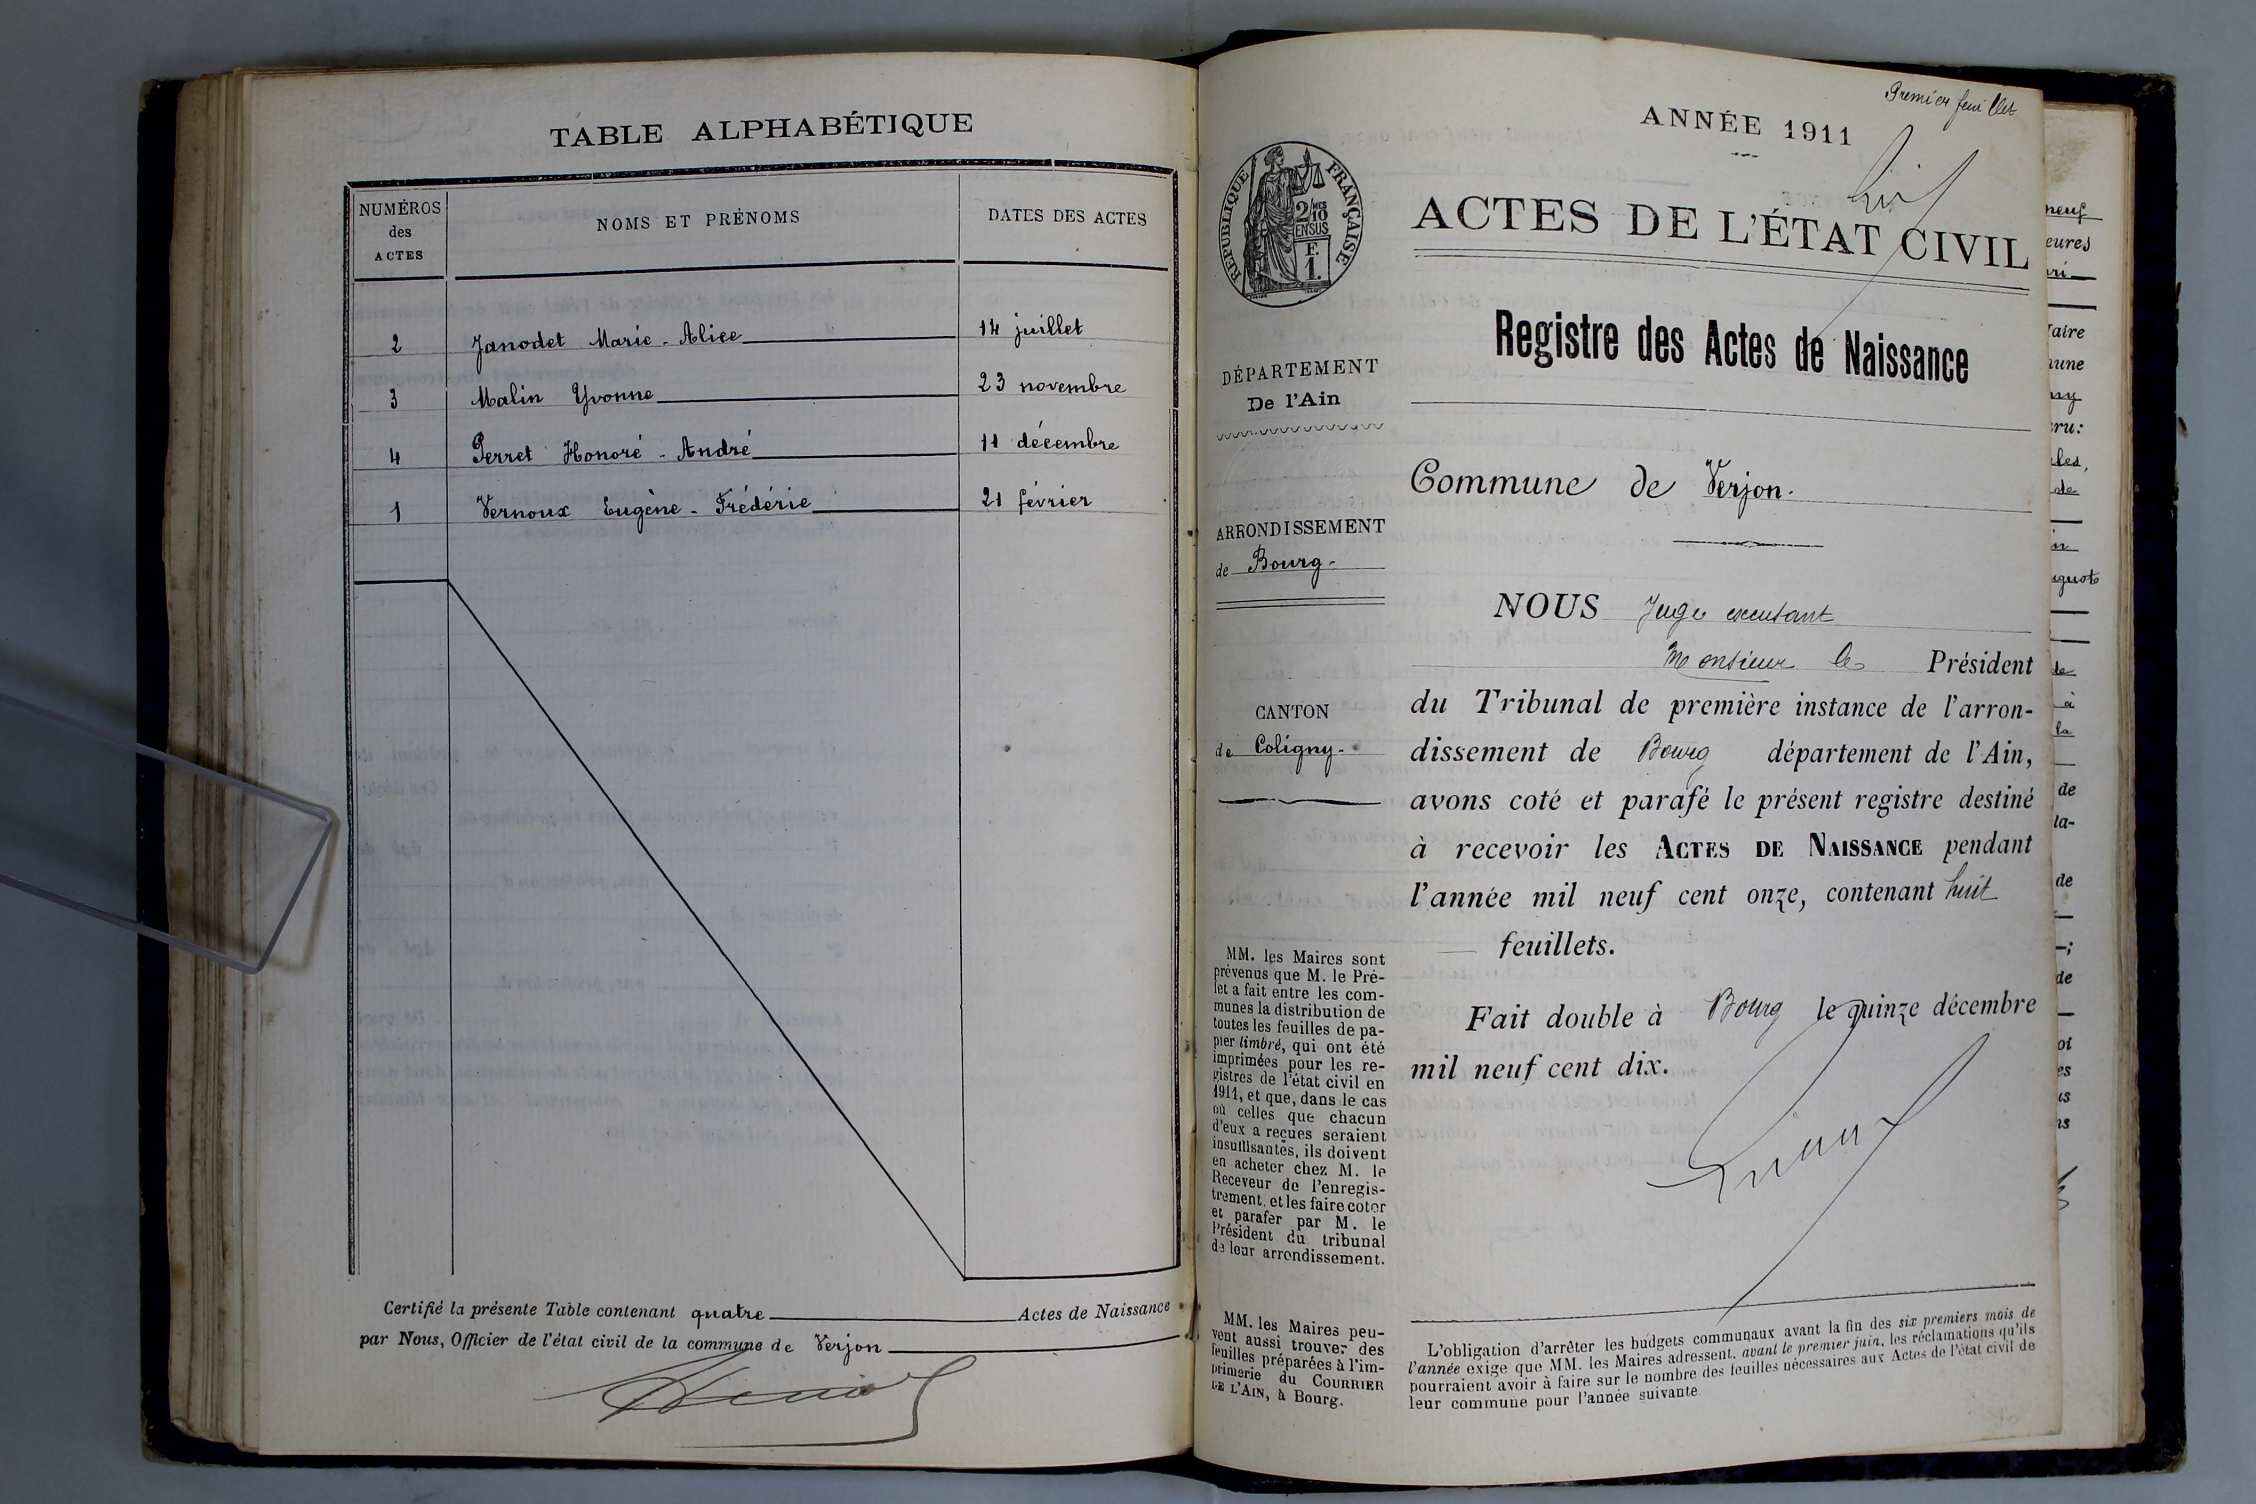 TABLE ALPHABÉTIQUE
NUMÉROS
des
ACTES
NOMS ET PRÉNOMS
DATES DES ACTES
2 Janodet Marie-Alice 14 juillet
3 Malin Yvonne 23 novembre
4 Perret Honoré-André 11 décembre
1 Vernoux Eugène-Frédéric 21 février
Certifié la présente Table contenant quatre Actes de Naissance
par Nous, Officier de l'état civil de la commune de Verjon
Premier feuillet
ANNÉE 1911
RÉPUBLIQUE FRANÇAISE
2/10
MES
EN SUS
F.
1.
ACTES DE L'ÉTAT CIVIL
Registre des Actes de Naissance
DÉPARTEMENT
De l'Ain
Commune de Verjon.
ARRONDISSEMENT
de Bourg.
CANTON
de Coligny.
NOUS Juge
Monsieur le Président
du Tribunal de première instance de l'arron-
dissement de Bourg département de l'Ain,
avons coté et parafé le présent registre destiné
à recevoir les ACTES DE NAISSANCE pendant
l'année mil neuf cent onze, contenant huit
feuillets.
Fait double à Bourg le quinze décembre
mil neuf cent dix.
MM. les Maires sont
prévenus que M. le Pré-
fet a fait entre les com-
munes la distribution de
toutes les feuilles de pa-
pier timbré, qui ont été
imprimées pour les re-
gistres de l'état civil en
1911, et que, dans le cas
où celles que chacun
d'eux a reçues seraient
insuffisantes, ils doivent
en acheter chez M. le
Receveur de l'enregis-
trement, et les faire coter
et parafer par M. le
Président du tribunal
de leur arrondissement.
MM. les Maires peu-
vent aussi trouver des
feuilles préparées à l'im-
primerie du COURRIER
DE L'AIN, à Bourg.
L'obligation d'arrêter les budgets communaux avant la fin des six premiers mois de
l'année exige que MM. les Maires adressent, avant le premier juin, les réclamations qu'ils
pourraient avoir à faire sur le nombre des feuilles nécessaires aux Actes de l'état civil de
leur commune pour l'année suivante